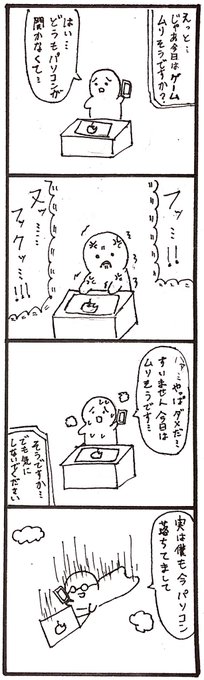 えっと…
じゃあ今日はゲーム
ムリそうですか？
はい…
どうもパソコンが
開かなくて…
フッ…!!!
ヌッ……
フックッ…!!!
ハァ…やっぱダメだ…
すいません今日は
ムリそうです…
そうですか…
でも気に
しないでください
実は僕も今パソコン
落ちてまして